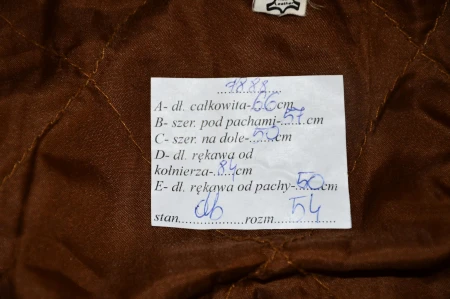 7888
A- dł. całkowita-66cm
B- szer. pod pachami-57cm
C- szer. na dole-50cm
D- dł. rękawa od
kołnierza-84cm
E- dł. rękawa od pachy-50cm
stan db rozm 54